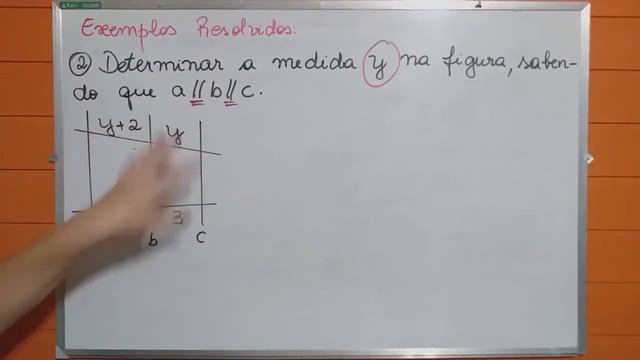 Exemplos Resolvidos:
② Determinar a medida y na figura, saben-
do que a // b // c.
y+2 y
3
b c